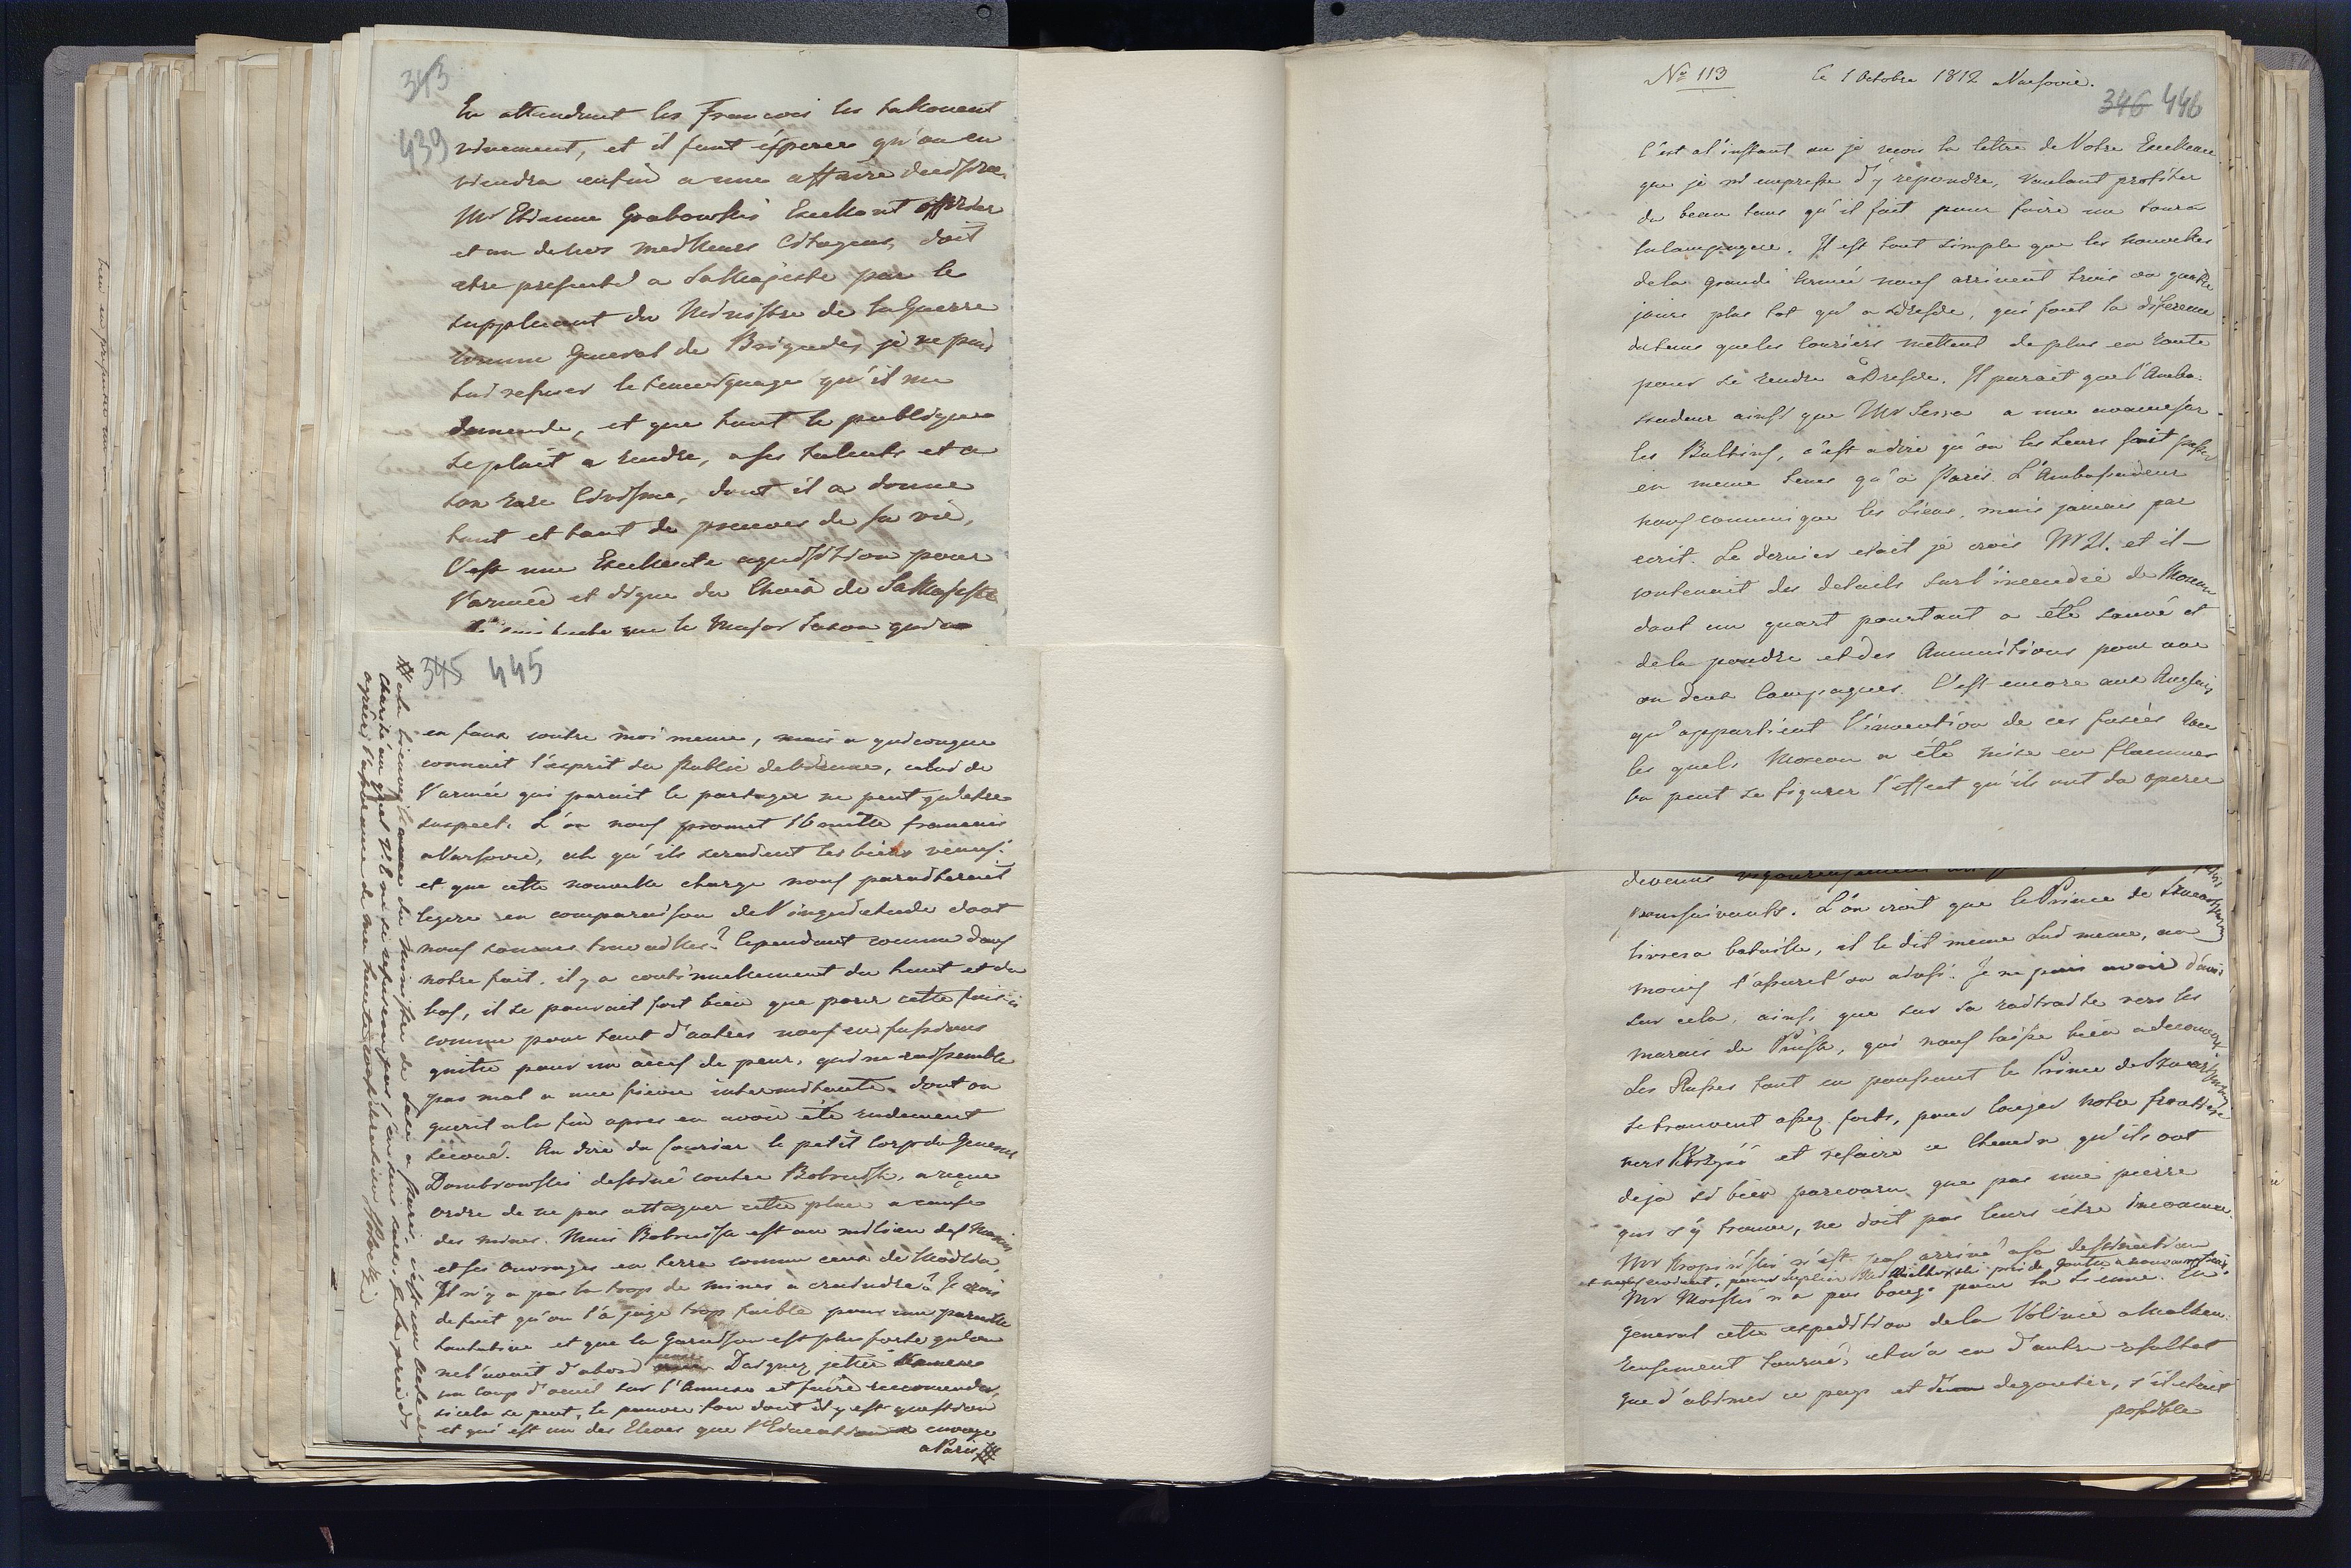 343
439
En attendant les Francois les talonent
vivement, et il faut ésperer qu'on en
viendra enfin a une affaire decisive.
Mr Etienne Grabowski Excellent officier
et un de nos meilleurs Citoyens, doit
etre presenté a Sa Majesté par le
suppleant du Ministre de la Guerre
comme General de Brigade, je ne puis
lui refuser le temoignage qu'il me
demande, et que tout le publique
se plait a rendre, a ses talents et a
son rare Civisme, dont il a donné
tant et tant de preuves de sa vie,
C'est une Excellente aquisition pour
l'armée et digne du Choix de Sa Majesté
que le Major Saxon
345 445
en faux contre moi meme, mais a quiconque
connait l'esprit du Public de Vienne, celui de
l'armée qui parait le partager ne peut qu'etre
suspect. L'on nous promet 16 mille francais
a Varsovie, ah qu'ils seraient les bien venus!
et que cette nouvelle charge nous paraitterait
legere en comparaison de l'inquietude dont
nous sommes travaillés? Cependant comme dans
notre fait, il y a continuellement du haut et du
bas, il se pouvait fort bien que pour cette fois ci
comme pour tant d'autres nous en fussions
quitte pour un accès de peur, qui ne ressemble
pas mal a une fievre intermitente dont on
guerit a la fin apres en avoir été rudement
secoué. Au dire du Courier le petit Corps du General
Dombrowski destiné contre Bobruisk, a reçu
ordre de ne pas attaquer cette place a cause
des mines. Mais Bobruisk est au milieu des Marais
et ses ouvrages en terre comme ceux de Modlin.
Il n'y a pas la trop de mines a craindre? Je crois
de fait qu'on l'a jugé trop faible pour une pareille
tantative et que la Garnison est plus forte qu'on
ne l'avait d'abord pensé Daignez jetter
un coup d'oeuil sur l'Annexe et faire recomender,
si cela se peut, le pauvre dont il y est question
et qui est un des Eleves que l'Education a envoyé
a Paris #
# a la du Ministre de Saxe a Paris, c'est un acte de
charité au quel V. E. ne se refusera pas. Je la prie d'y
agréer l'assurance de ma haute consideration Potocki
No 113 Ce 1 Octobre 1812 Varsovie.
346 446
C'est a l'instant ou je reçois la lettre de Votre Excellence
que je m'empresse d'y repondre, voulant profiter
du beau tems qu'il fait pour faire un tour a
la Campagne. Il est tout simple que les nouvelles
de la grande Armée nous arrivent trois ou quatre
jours plus tot qu'a Dresde, qui font la diference
du tems que les Couriers mettent de plus en route
pour se rendre à Dresde. Il parait que l'Amba-
ssadeur ainsi que Mr Serra a une avance sur
les Bultins, c'est a dire qu'on les leurs fait passer
en meme tems qu'a Paris. L'Ambassadeur
nous comunique les siens, mais jamais par
ecrit. Le dernier etait je crois N 21. et il
contenait des details sur l'incendie de Moscou
dont un quart pourtant a été sauvé et
de la poudre et des Amunitions pour une
ou deux Campagnes. C'est encore aux Anglais
qu'appartient l'invention de ces fusées avec
les quels Moscou a été mise en flammes
on peut se figurer l'effect qu'ils ont du operer
devenus vigoureusement
poursuivants. L'on croit que le Prince de Szwarzenberg
livrera bataille, il le dit meme lui meme, au
moins l'assuret'on ainsi. Je ne puis avoir d'avis
sur cela, ainsi que sur sa raitraite vers les
marais de Pinsk, qui nous laisse bien a decouvert.
Les Russes tout en poussant le Prince de Szwarzenberg
se trouvent assez forts, pour longer notre frontiere
vers et refaire ce Chemin qu'ils ont
deja si bien parcouru que pas une pierre
qui s'y trouve, ne doit pas leurs etre inconnue.
Mr n'est pas arrivé a sa destination
Mr Morski n'a pas bougé pour la sienne. En
general cette expedition de la Volinie a malheu-
reusement tourné, et n'a eu d'autre resultat
que d'abimer ce pays et degouter, s'il etait
possible